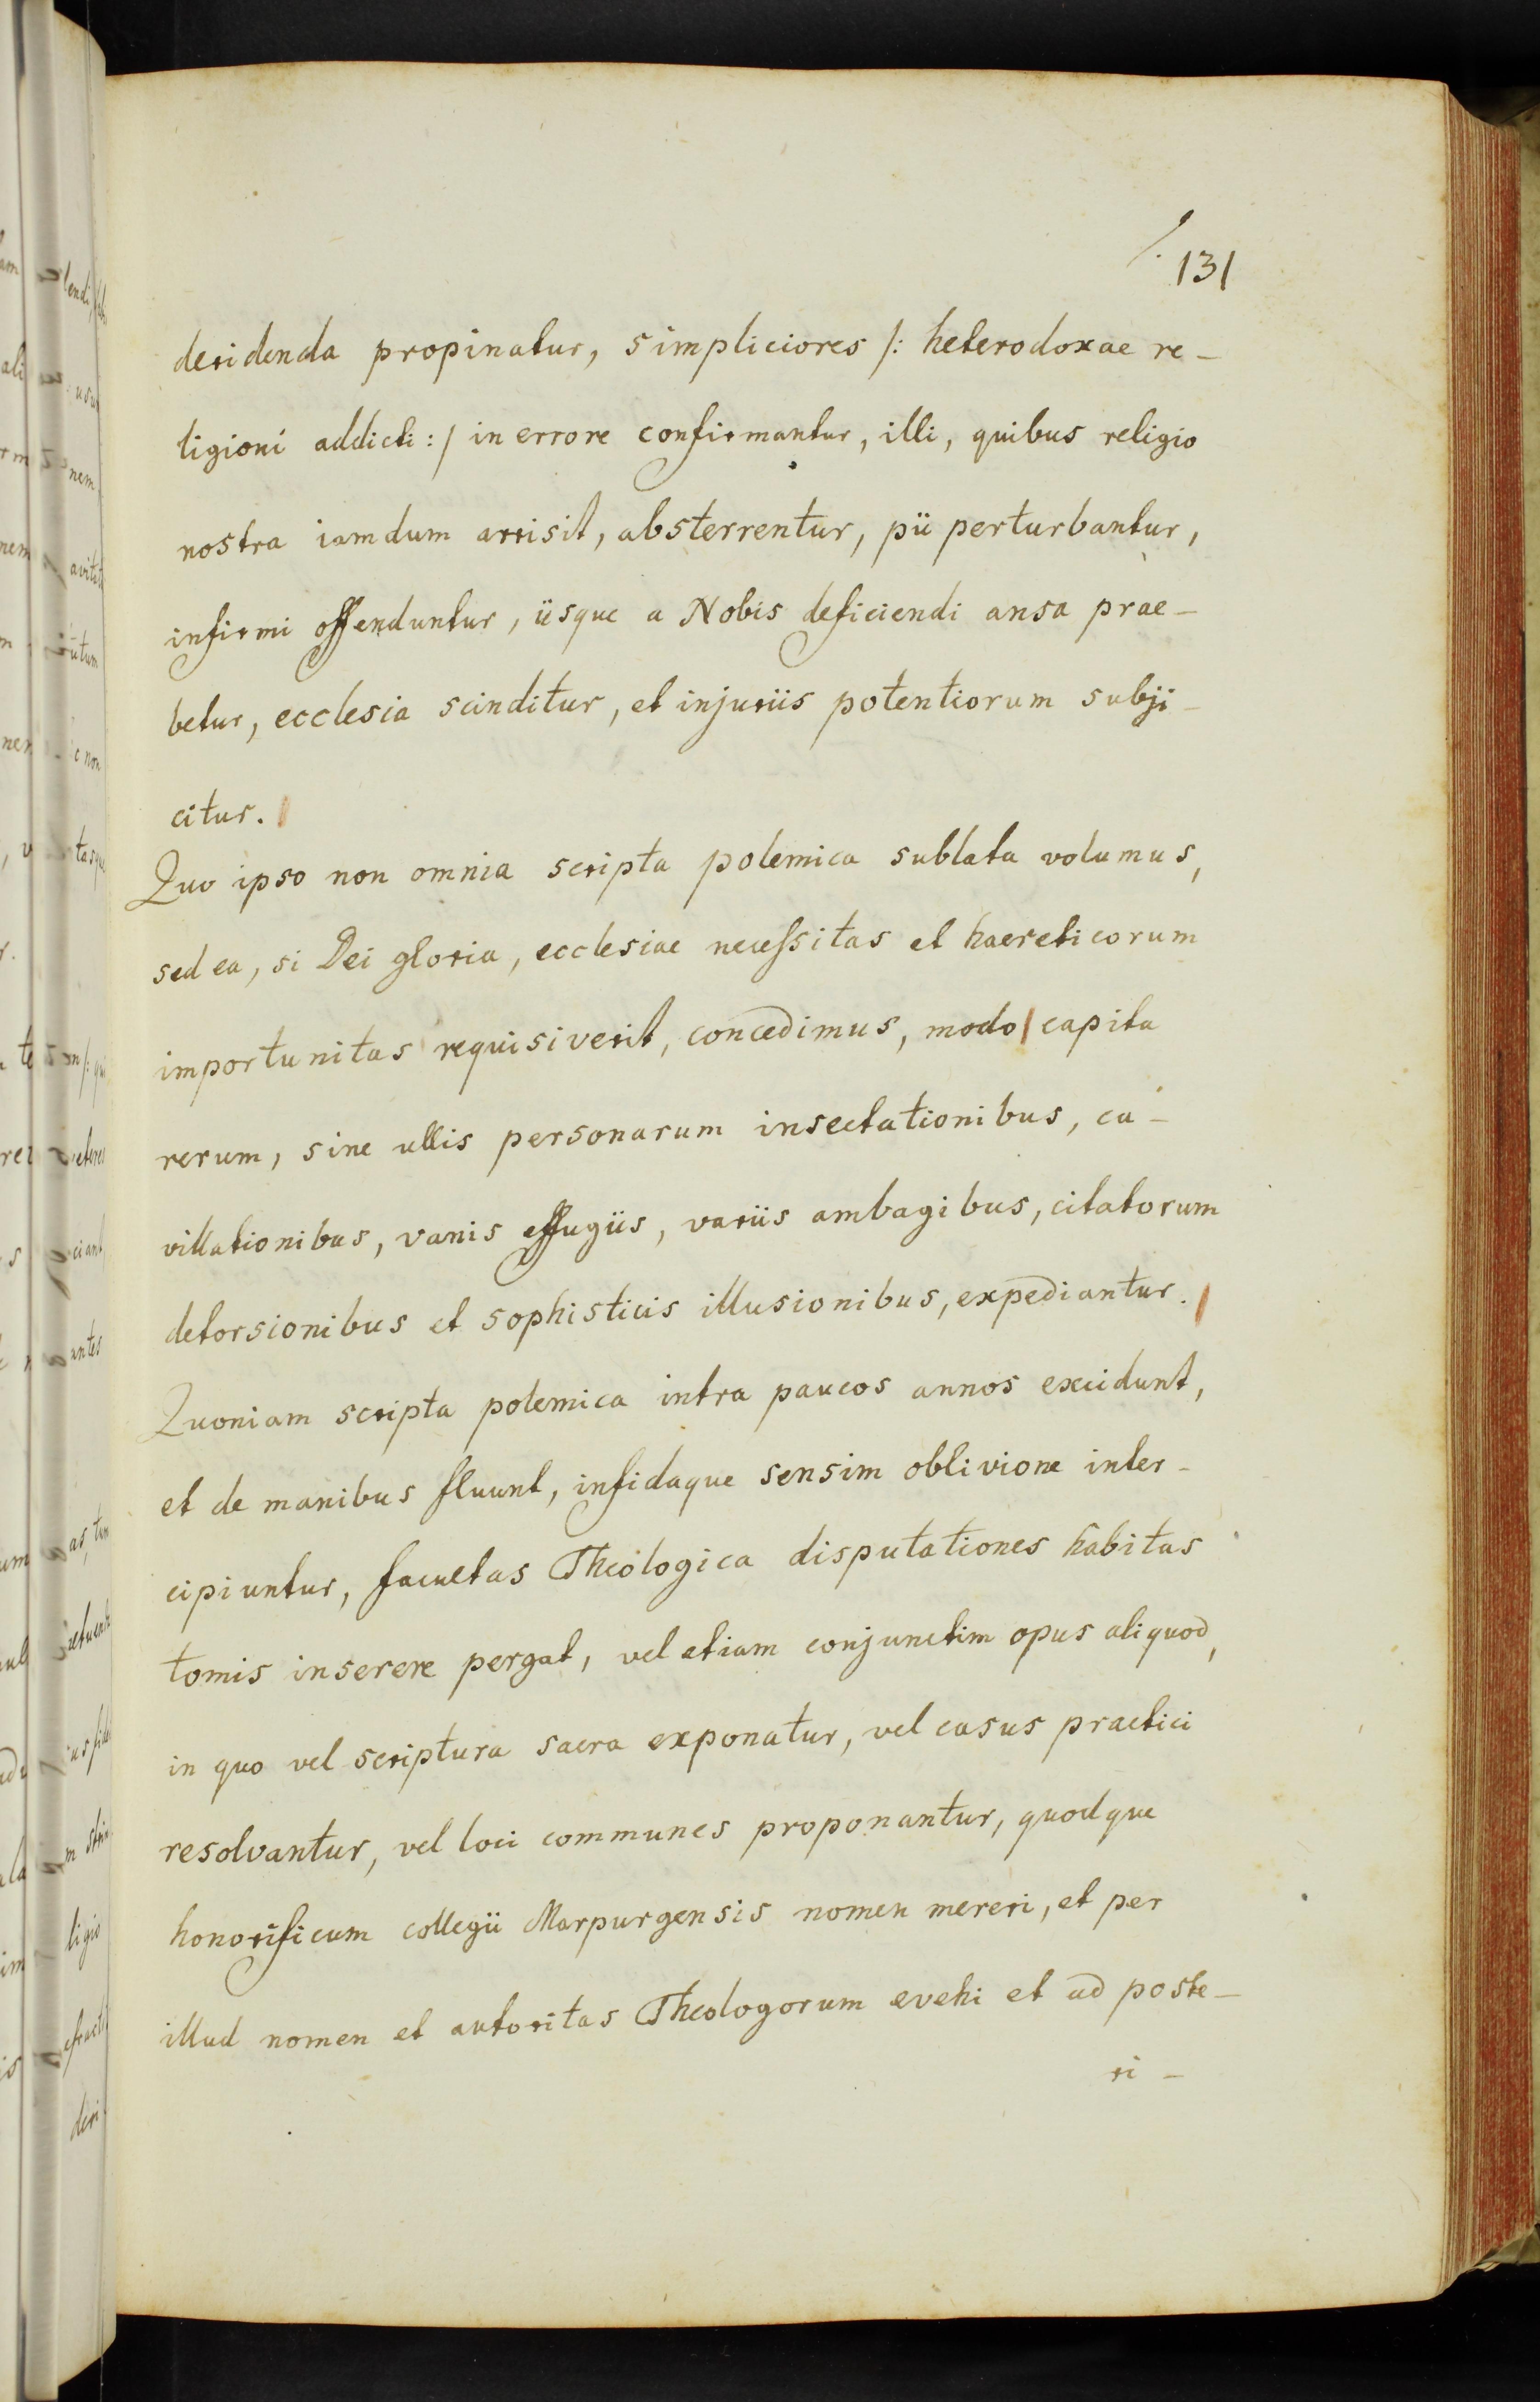 131
deridenda propinatur, simpliciores /: heterodoxae re-
ligioni addicti :/ in errore confirmantur, illi, quibus religio
nostra iamdum arrisit, absterrentur, pii perturbantur,
infirmi offenduntur, iisque a Nobis deficiendi ansa prae-
betur, ecclesia scinditur, et injuriis potentiorum subji-
citur.
Quo ipso non omnia scripta polemica sublata volumus,
sed ea, si Dei gloria, ecclesiae necessitas et haereticorum
importunitas requisiverit, concedimus, modo capita
rerum, sine ullis personarum insectationibus, ca-
villationibus, vanis effugiis, variis ambagibus, citatorum
detorsionibus et sophisticis illusionibus, expediantur.
Quoniam scripta polemica intra paucos annos excidunt,
et de manibus fluunt, infidaque sensim oblivione inter-
cipiuntur, facultas Theologica disputationes habitas
tomis inserere pergat, vel etiam conjunctim opus aliquod,
in quo vel scriptura sacra exponatur, vel casus practici
resolvantur, vel loci communes proponantur, quodque
honorificum collegii Marpurgensis nomen mereri, et per
illud nomen et autoritas Theologorum evehi et ad poste-
ri-